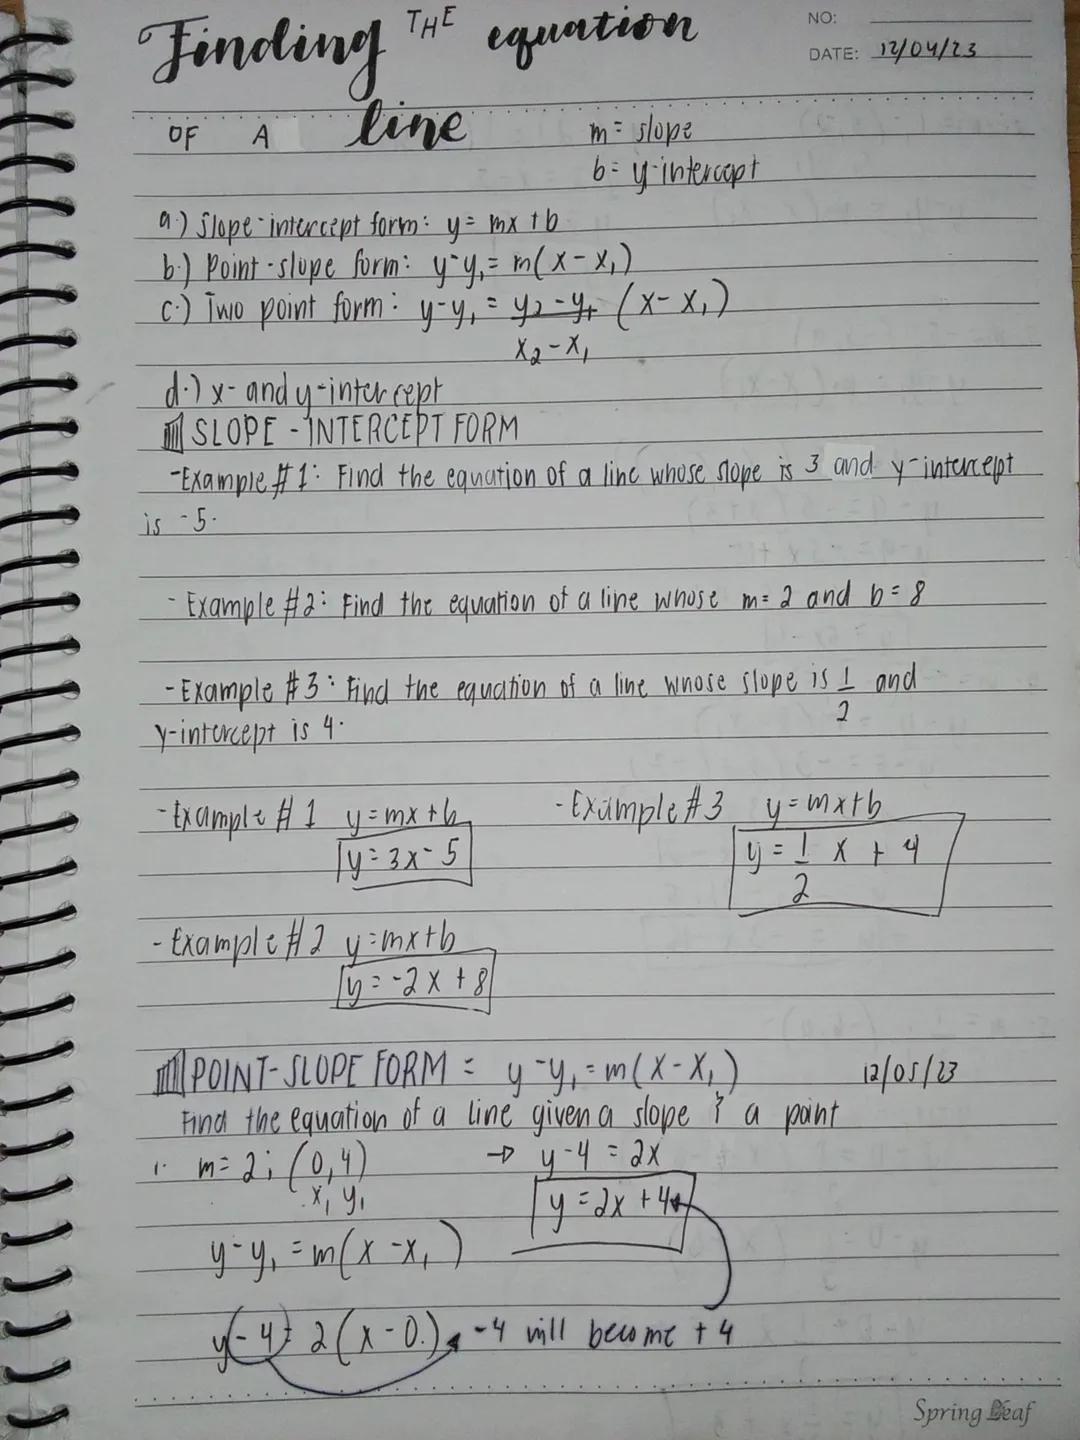 Finding THE equation
NO:
DATE: 12/04/23
OF A line
m = slope
b = y-intercept
a.) Slope-intercept form: y = mx + b
b.) Point-slope form: y-y₁ = m(x-x₁)
c.) Two point form: y-y₁ = y₂-y₁ (x-x₁)
x₂-x₁
d.) x- and y-intercept
SLOPE-INTERCEPT FORM
-Example #1: Find the equation of a line whose slope is 3 and y-intercept
is -5.
- Example #2: Find the equation of a line whose m= 2 and b = 8
- Example #3: Find the equation of a line whose slope is 1 and
2
y-intercept is 4.
- Example #1 y = mx + b
y = 3x - 5
- Example #3 y = mx + b
y = 1 x + 4
2
- Example #2 y = mx + b
y = -2x + 8
POINT-SLOPE FORM = y-y₁ = m(x-x₁) 12/05/23
Find the equation of a line given a slope & a point
1. m= 2; (0,4) → y-4 = 2x
x₁ y₁ y = 2x + 4
y-y₁ = m(x-x₁)
y-4 = 2(x-0.) -4 will become +4
Spring Leaf